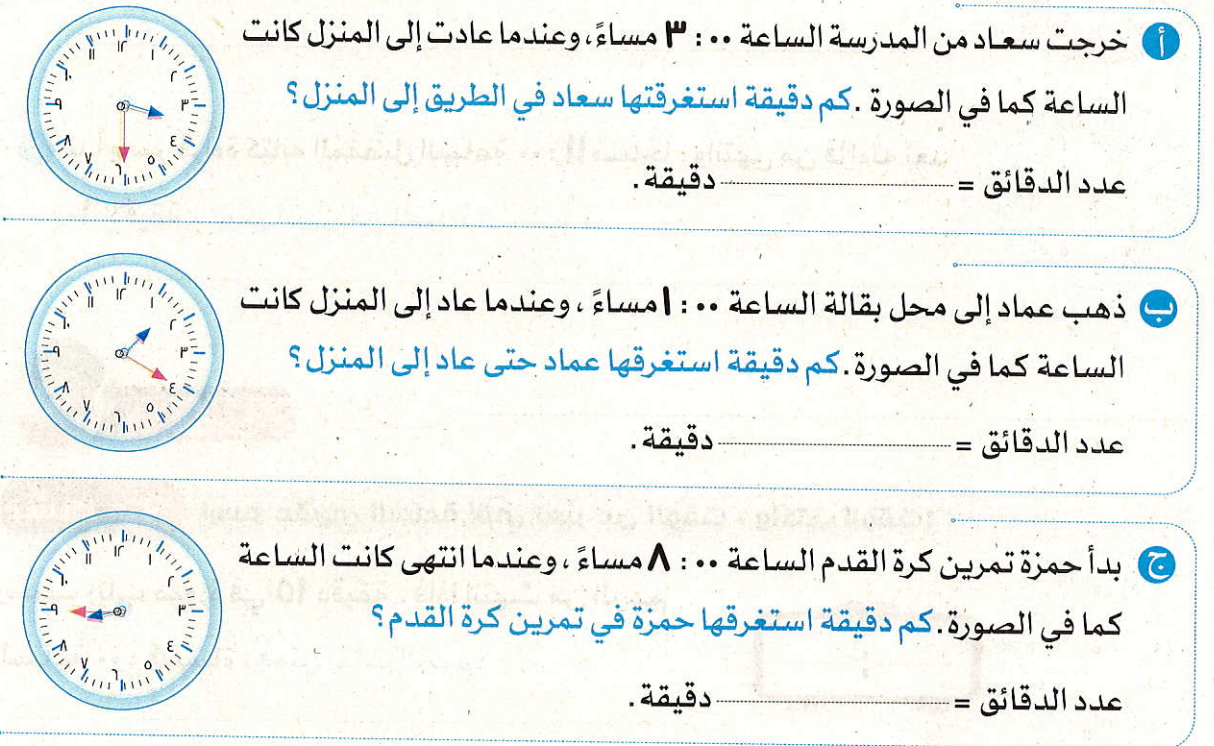 أ خرجت سعاد من المدرسة الساعة ٠٠ : ٣ مساءً، وعندما عادت إلى المنزل كانت
الساعة كما في الصورة. كم دقيقة استغرقتها سعاد في الطريق إلى المنزل؟
عدد الدقائق = دقيقة.
١٢ ١ ٢ ٣ ٤ ٥ ٦ ٧ ٨ ٩ ١٠ ١١
ب ذهب عماد إلى محل بقالة الساعة ٠٠ : ١ مساءً، وعندما عاد إلى المنزل كانت
الساعة كما في الصورة. كم دقيقة استغرقها عماد حتى عاد إلى المنزل؟
عدد الدقائق = دقيقة.
١٢ ١ ٢ ٣ ٤ ٥ ٦ ٧ ٨ ٩ ١٠ ١١
ج بدأ حمزة تمرين كرة القدم الساعة ٠٠ : ٨ مساءً، وعندما انتهى كانت الساعة
كما في الصورة. كم دقيقة استغرقها حمزة في تمرين كرة القدم؟
عدد الدقائق = دقيقة.
١٢ ١ ٢ ٣ ٤ ٥ ٦ ٧ ٨ ٩ ١٠ ١١